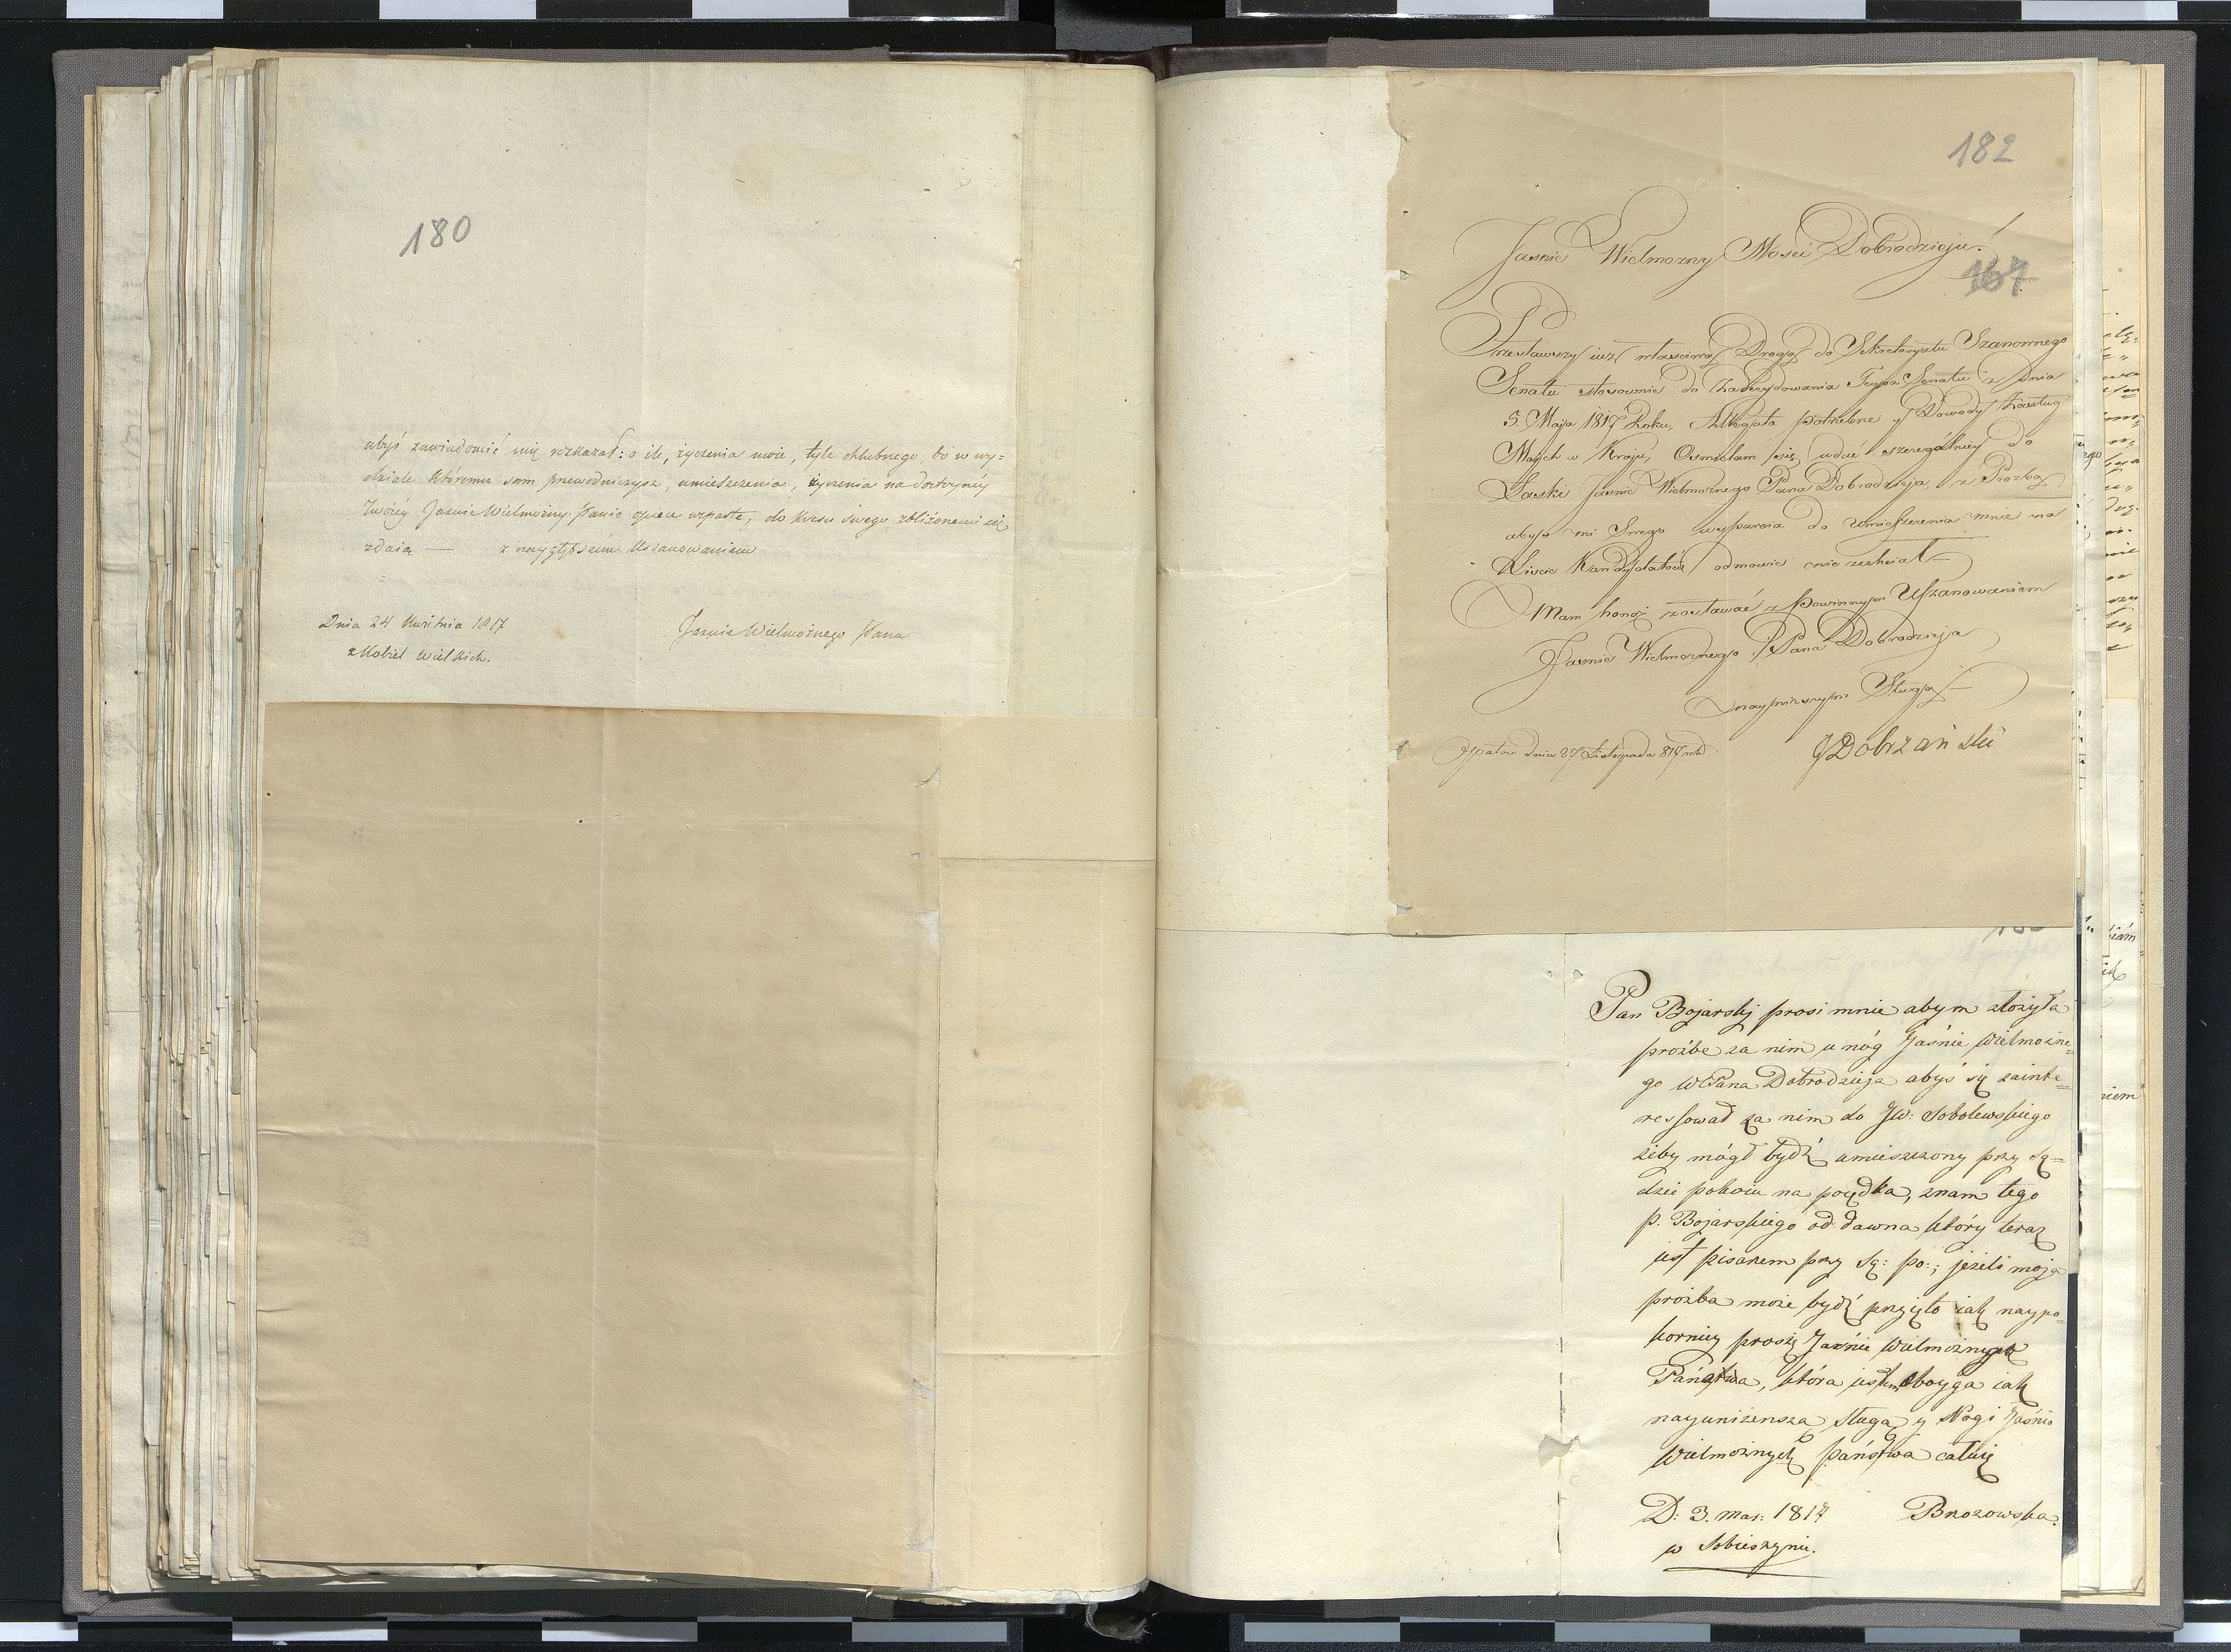 180
abyś zawiadomić mię rozkazał: o ile, życzenia moie, tyle chlubnego, bo w wy=
dziale któremu sam przewodniczysz, umieszczenia, życzenia na dostoynéy
Twóiéy Jaśnie Wielmożny Panie opiece wsparte, do kresu swego zbliżonemi się
zdaią — z naygłębszém Uszanowaniem
Dnia 24 Kwietnia 1817
z Kobiel Wielkich.
Jaśnie Wielmożnego Pana
182
Jasnie Wielmozny Mosci Dobrodzieju!
167
Przesławszy iuż własciwą Drogą do Sekretaryatu Szanownego
Senatu stosownie do Zadecydowania Tegoż Senatu z Dnia
5. Maja 1817 Roku, Allegata potrzebne y Dowody Zasług
Moych w Kraju, Osmielam się udać szczegulniey do
Łaski Jasnie Wielmoznego Pana Dobrodzieja, z Prozbą
abyś mi Swego wsparcia do Umieszczenia mnie na
Liscie Kandydatów odmowić nie zechciał
Mam honor zostawać z Powinnym Uszanowaniem
Jasnie Wielmoznego Pana Dobrodzieja
nayniższym Sługą
Opatów dnia 27 Listopada 817 rok
J Dobrzański
Pan Bojarskj prosi mnie abym złożyła
proźbe za nim u nóg Jaśnie Wielmożne=
go WPana Dobrodzieja abyś się zainte=
ressował za nim do JW: Sobolewskiego
żeby mógł bydź umieszczony przy Są=
dzie pokoiu na podsędka, znam tego
P. Bojarskiego od dawna który teraz
jest pisarzem przy Są: po:; jeżeli moja
proźba może bydź przyięto iak naypo=
korniey proszę Jaśnie Wielmożnych
Państwa, która jestem oboyga iak
nayuniżensza sługa y Nogi Jaśnie
Wielmożnych państwa całuię
D: 3. mar: 1817 Brzozowska.
w Sobieszynie.